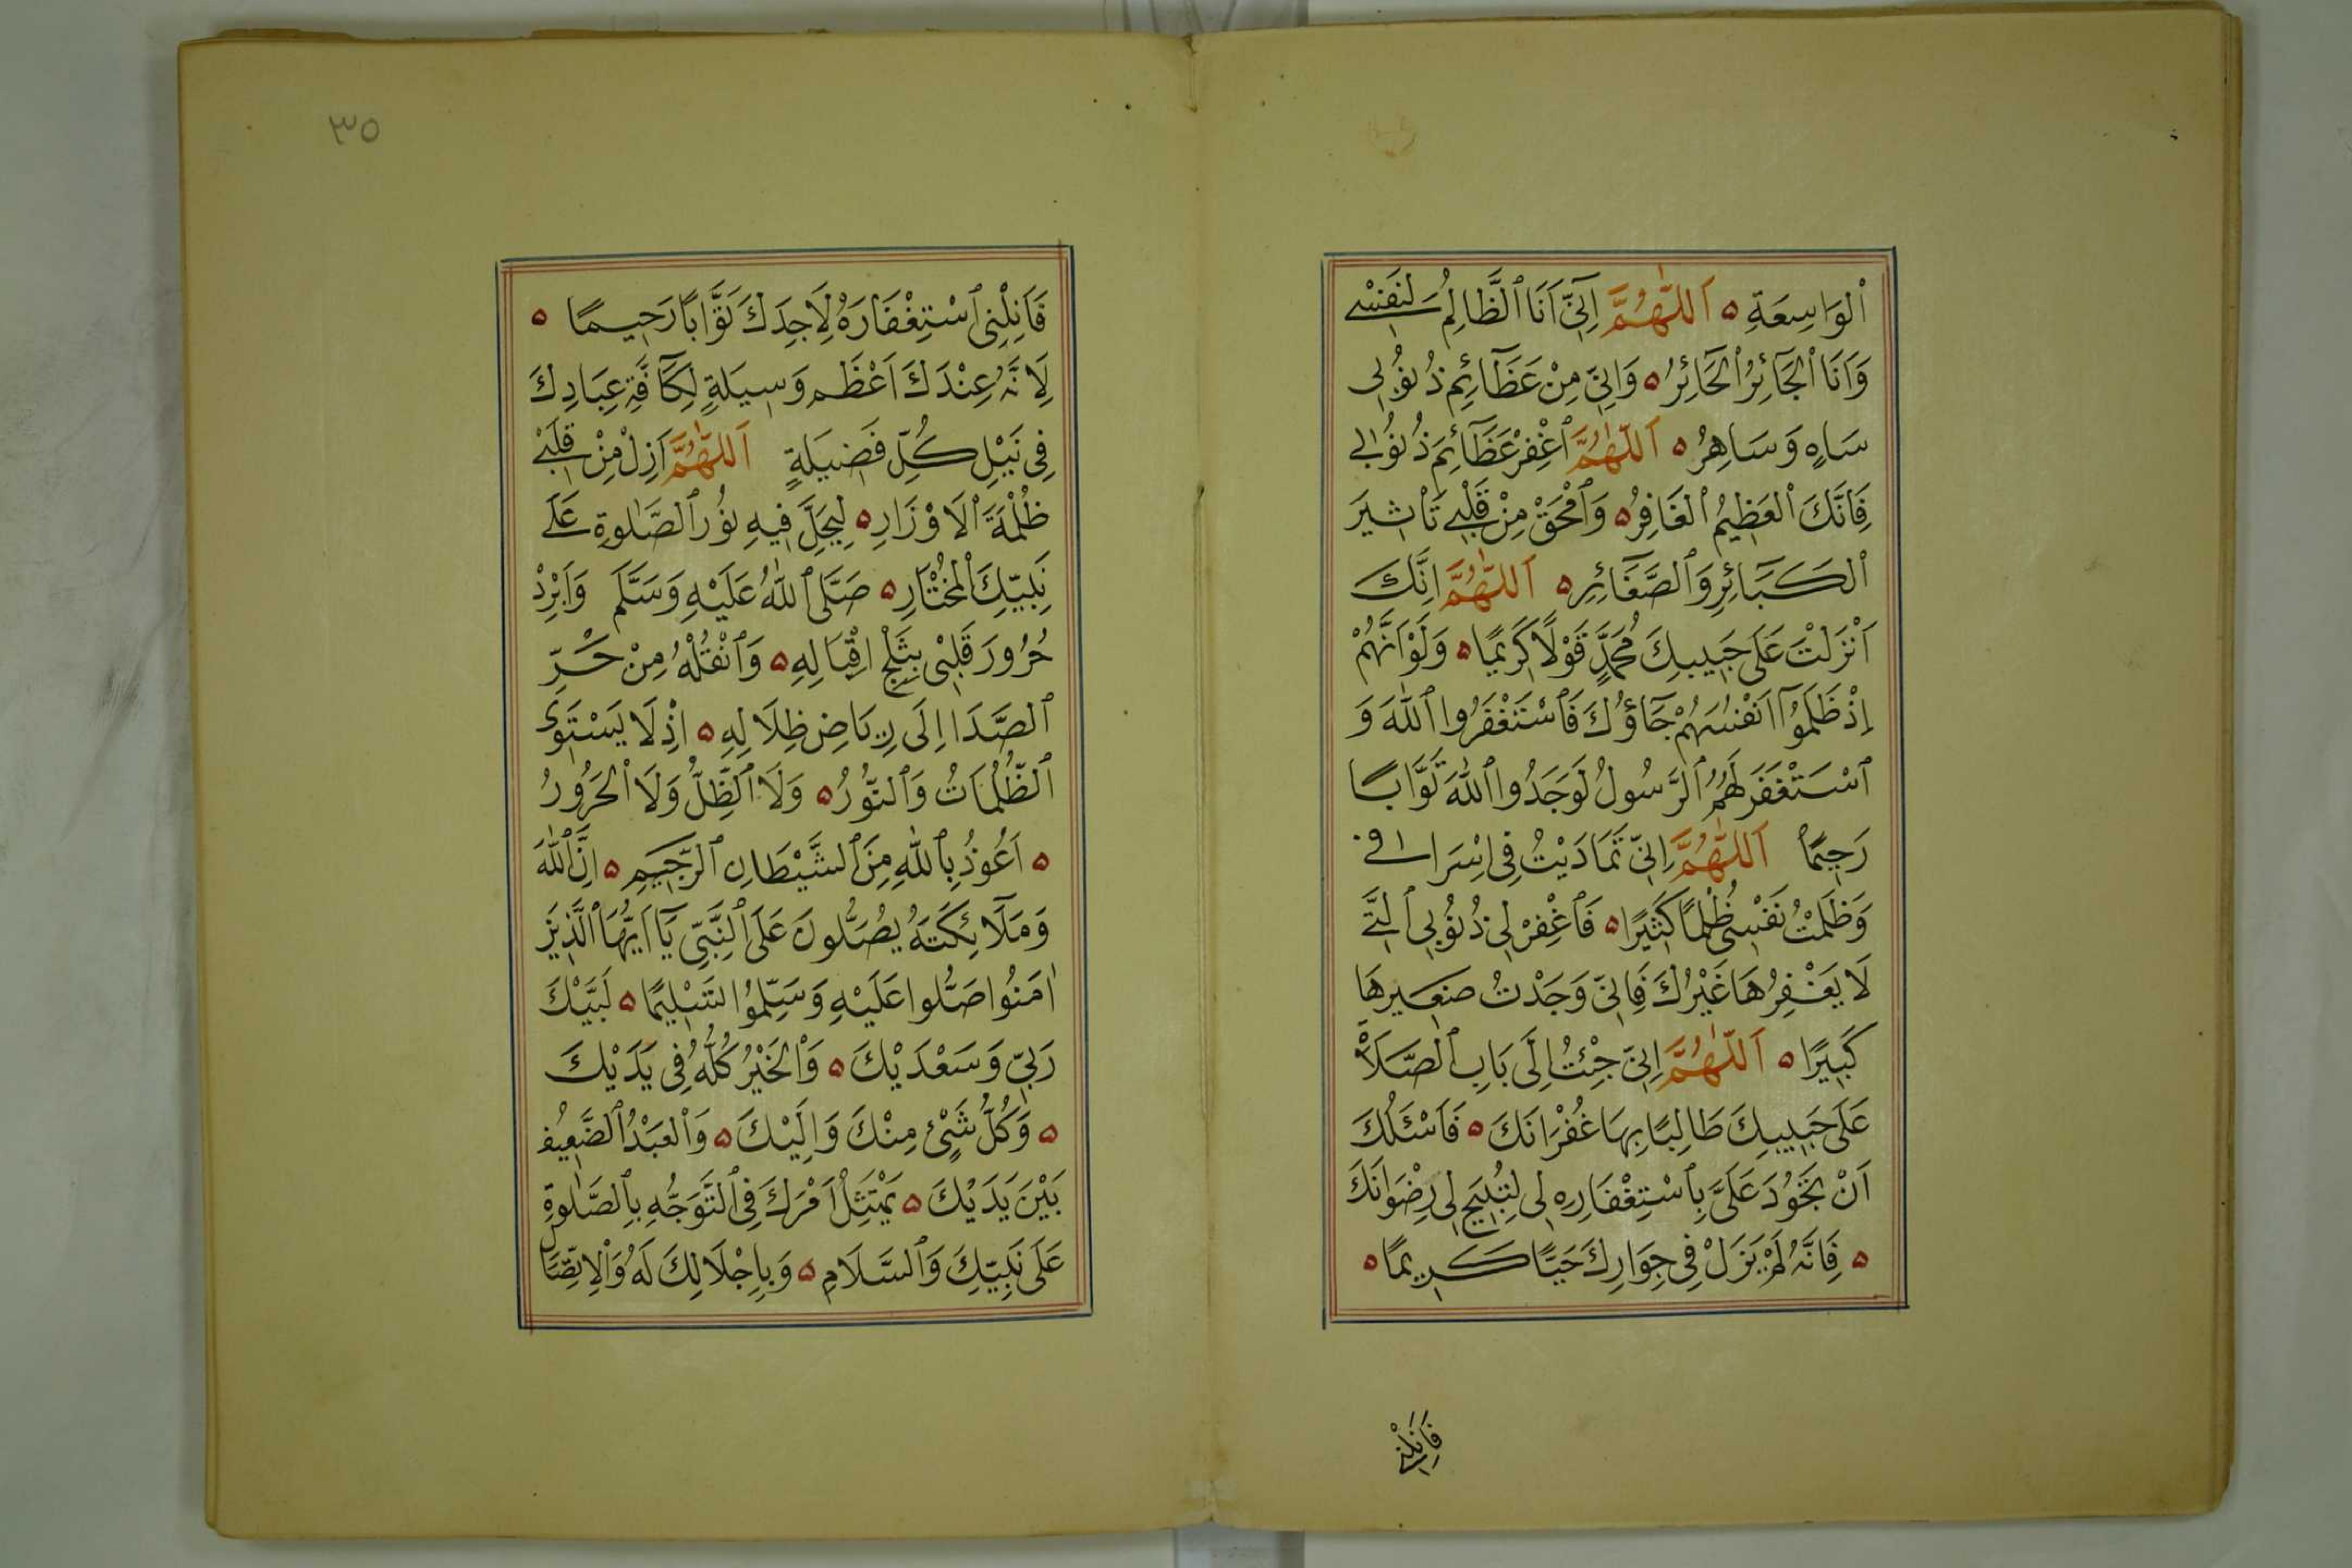 اَلْوَاسِعَةِ ۝ اَللّٰهُمَّ اِنِّيٓ اَنَا ٱلظَّالِمُ لِنَفْسِي
وَاَنَا ٱلْجَآئِرُ ٱلْحَائِرُ ۝ وَاِنِّي مِنْ عَظَآئِمِ ذُنُوبِي
سَاهٍ وَسَاهِرُ ۝ اَللّٰهُمَّ ٱغْفِرْ عَظَآئِمَ ذُنُوبِي
فَاِنَّكَ ٱلْعَظِيمُ ٱلْغَافِرُ ۝ وَٱمْحَقْ مِنْ قَلْبِي تَاْثِيرَ
ٱلْكَبَآئِرِ وَٱلصَّغَآئِرِ ۝ اَللّٰهُمَّ اِنَّكَ
اَنْزَلْتَ عَلَى حَبِيبِكَ مُحَمَّدٍ قَوْلًا كَرِيمًا ۝ وَلَوْ اَنَّهُمْ
اِذْ ظَلَمُوٓا اَنْفُسَهُمْ جَآؤُكَ فَٱسْتَغْفَرُوا ٱللّٰهَ وَ
ٱسْتَغْفَرَ لَهُمُ ٱلرَّسُولُ لَوَجَدُوا ٱللّٰهَ تَوَّابًا
رَحِيمًا اَللّٰهُمَّ اِنِّي تَمَادَيْتُ فِي اِسْرَافِي
وَظَلَمْتُ نَفْسِي ظُلْمًا كَثِيرًا ۝ فَٱغْفِرْ لِي ذُنُوبِي ٱلَّتِي
لَا يَغْفِرُهَا غَيْرُكَ فَاِنِّي وَجَدْتُ صَغِيرَهَا
كَبِيرًا ۝ اَللّٰهُمَّ اِنِّي جِئْتُ اِلَى بَابِ ٱلصَّلَاةِ
عَلَى حَبِيبِكَ طَالِبًا بِهَا غُفْرَانَكَ ۝ فَاَسْئَلُكَ
اَنْ تَجُودَ عَلَيَّ بِٱسْتِغْفَارِهِ لِي لِتُبِيحَ لِي رِضْوَانَكَ
۝ فَاِنَّهُ لَمْ يَزَلْ فِي جِوَارِكَ حَيًّا كَرِيمًا ۝
فَاَنِلْنِي
٣٥
فَاَنِلْنِي ٱسْتِغْفَارَهُ لِاَجِدَكَ تَوَّابًا رَحِيمًا ۝
لِاَنَّهُ عِنْدَكَ اَعْظَم وَسِيلَةٍ لِكَآفَّةِ عِبَادِكَ
فِي نَيْلِ كُلِّ فَضِيلَةٍ اَللّٰهُمَّ اَزِلْ مِنْ قَلْبِي
ظُلْمَةَ ٱلْاَوْزَارِ ۝ لِيَحِلَّ فِيهِ نُورُ ٱلصَّلٰوةِ عَلَى
نَبِيِّكَ ٱلْمُخْتَارِ ۝ صَلَّى ٱللّٰهُ عَلَيْهِ وَسَلَّمَ وَاَبْرِدْ
حُرُورَ قَلْبِي بِثَلْجِ اِقْبَالِهِ ۝ وَٱنْقُلْهُ مِنْ حَرِّ
ٱلصَّدَا اِلَى رِيَاضِ ظِلَالِهِ ۝ اِذْ لَا يَسْتَوِي
ٱلظُّلُمَاتُ وَٱلنُّورُ ۝ وَلَا ٱلظِّلُّ وَلَا ٱلْحَرُورُ
۝ اَعُوذُ بِٱللّٰهِ مِنَ ٱلشَّيْطَانِ ٱلرَّجِيمِ ۝ اِنَّ ٱللّٰهَ
وَمَلَآئِكَتَهُ يُصَلُّونَ عَلَى ٱلنَّبِيِّ يَآ اَيُّهَا ٱلَّذِينَ
اٰمَنُوا صَلُّوا عَلَيْهِ وَسَلِّمُوا تَسْلِيمًا ۝ لَبَّيْكَ
رَبِّي وَسَعْدَيْكَ ۝ وَٱلْخَيْرُ كُلُّهُ فِي يَدَيْكَ
۝ وَكُلُّ شَيْئٍ مِنْكَ وَاِلَيْكَ ۝ وَٱلْعَبْدُ ٱلضَّعِيفُ
بَيْنَ يَدَيْكَ ۝ يَمْتَثِلْ اَمْرَكَ فِي ٱلتَّوَجُّهِ بِٱلصَّلٰوةِ
عَلَى نَبِيِّكَ وَٱلسَّلَامِ ۝ وَبِاِجْلَالِكَ لَهُ وَٱلْاِتِّصَالِ